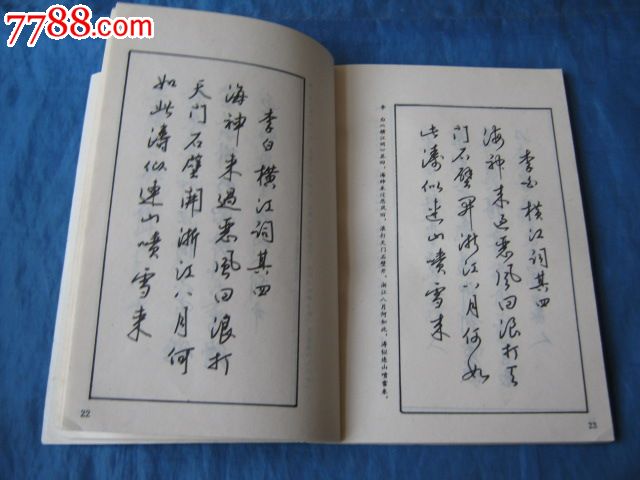 7788.com
李白横江词其四
海神来過恶風回浪打
天门石壁開浙江八月何
如此涛似連山喷雪来
22
李白《横江词》其四:海神来过恶风回,浪打天门石壁开。浙江八月何如此,涛似连山喷雪来。
李白横江词其四
海神来过恶风回浪打天
门石壁开浙江八月何如
此涛似连山喷雪来
23